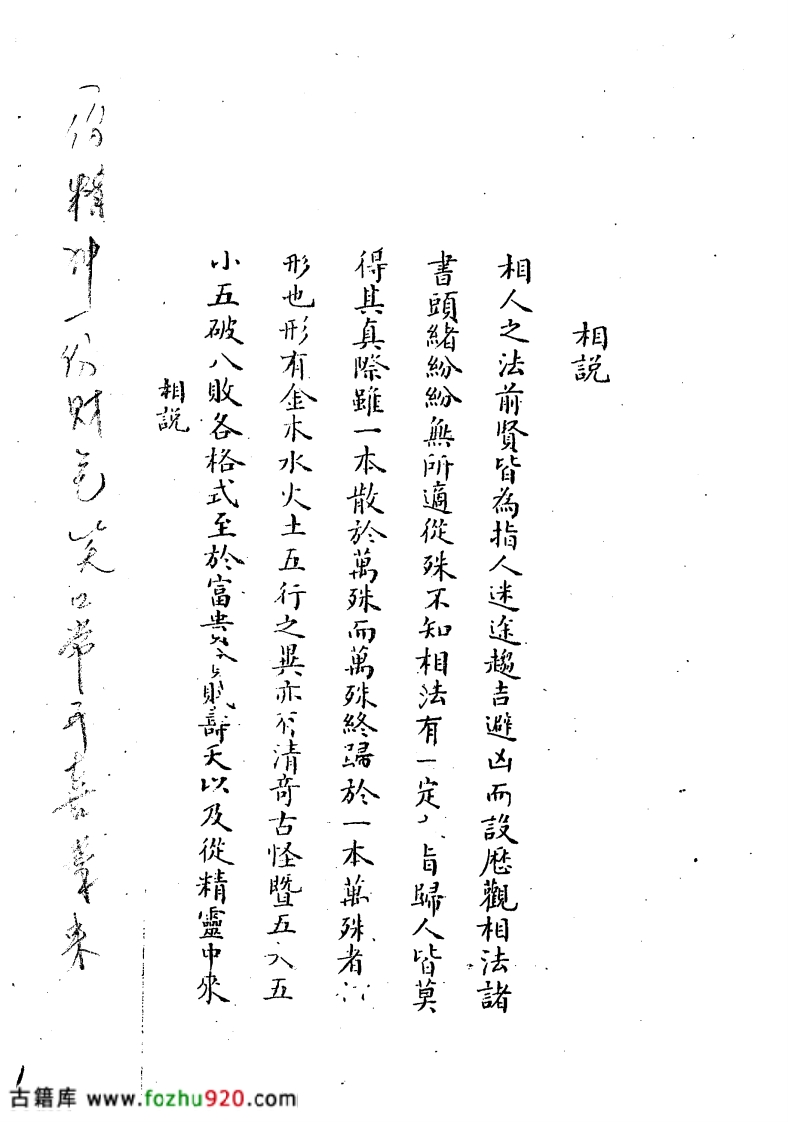 相説
相人之法前賢皆為指人迷途趨吉避凶而設歷觀相法諸
書頭緒紛紛無所適從殊不知相法有一定旨歸人皆莫
得其真際雖一本散於萬殊而萬殊終歸於一本萬殊者
形也形有金木水火土五行之異亦有清奇古怪暨五大五
小五破八敗各格式至於富貴賤壽夭以及從精靈中來
相説
一份精神一份财
笑口常开喜事来
1
古籍库 www.fozhu920.com